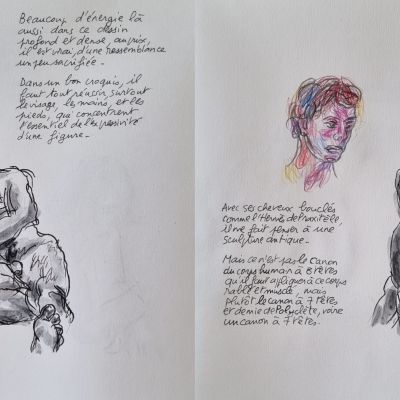 Beaucoup d'énergie là
aussi dans ce dessin
profond et dense, au prix,
il est vrai, d'une ressemblance
un peu sacrifiée.
Dans un bon croquis, il
faut tout réussir, surtout
le visage, les mains, et les
pieds, qui concentrent
l'essentiel de l'expressivité
d'une figure.
Avec ses cheveux bouclés
comme l'Hermès de Praxitèle,
il me fait penser à une
sculpture antique.
Mais ce n'est pas le Canon
du corps humain à 8 têtes
qu'il faut appliquer à ce corps
rablé et musclé, mais
plutôt le canon à 7 têtes
et demie de Polyclète, voire
un canon à 7 têtes.